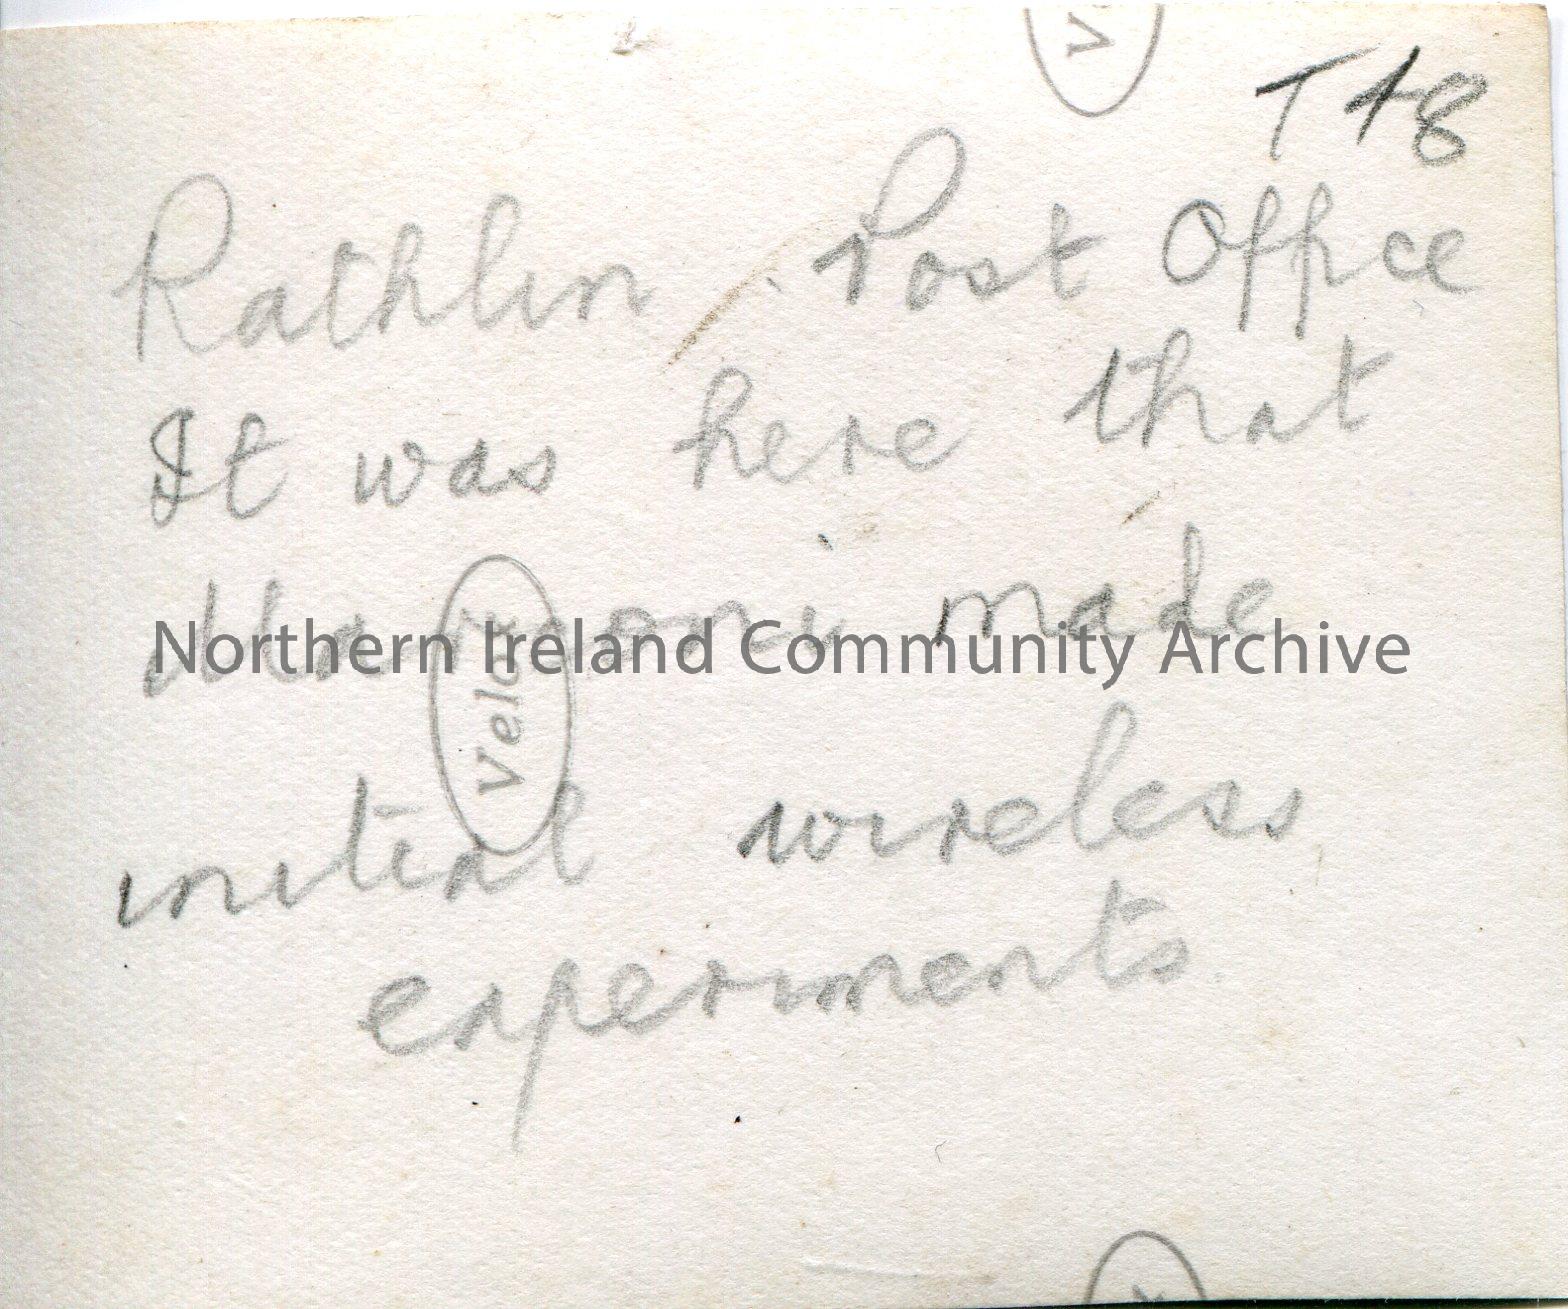 T 18
Rathlin Post Office
It was here that
Marconi made
Northern Ireland Community Archive
Velox
initial wireless
experiments